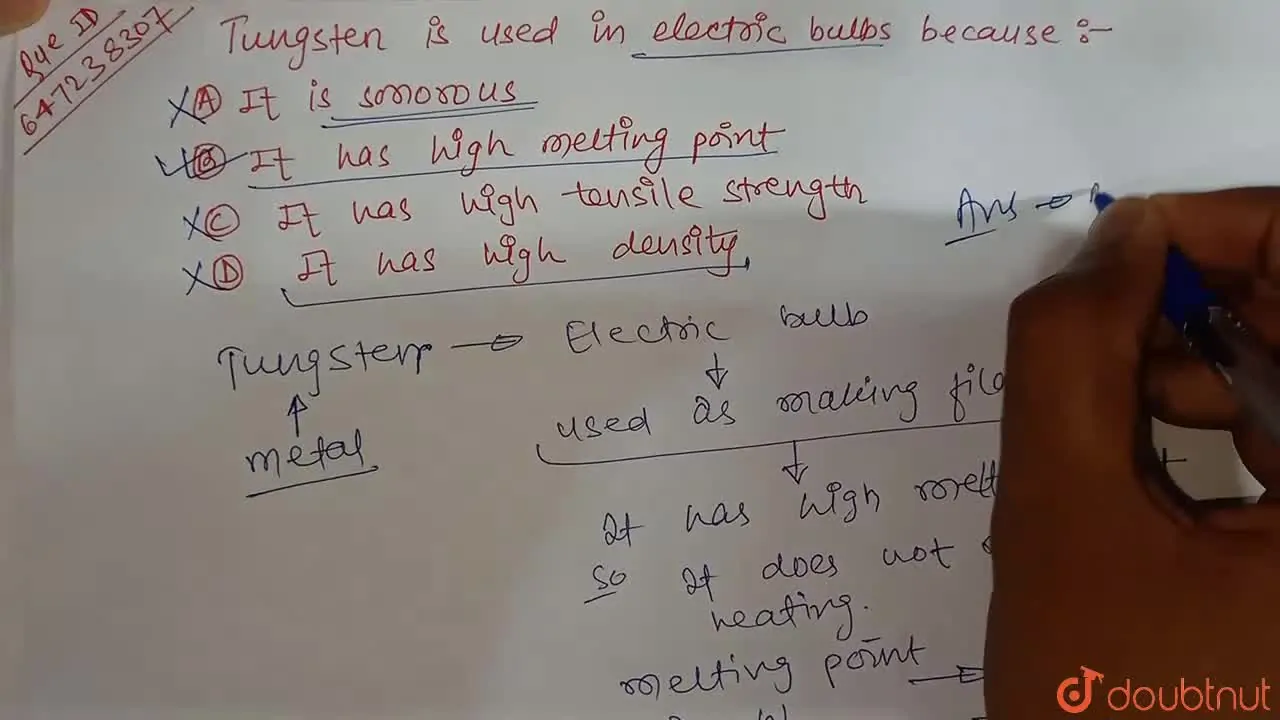 Que ID
647238307
Tungsten is used in electric bulbs because :-
A It is sonorous
B It has high melting point
C It has high tensile strength
D It has high density
Ans →
Tungsten → Electric bulb
↑
metal
↓
used as making
↓
It has high
So it does not
heating.
melting point →
doubtnut